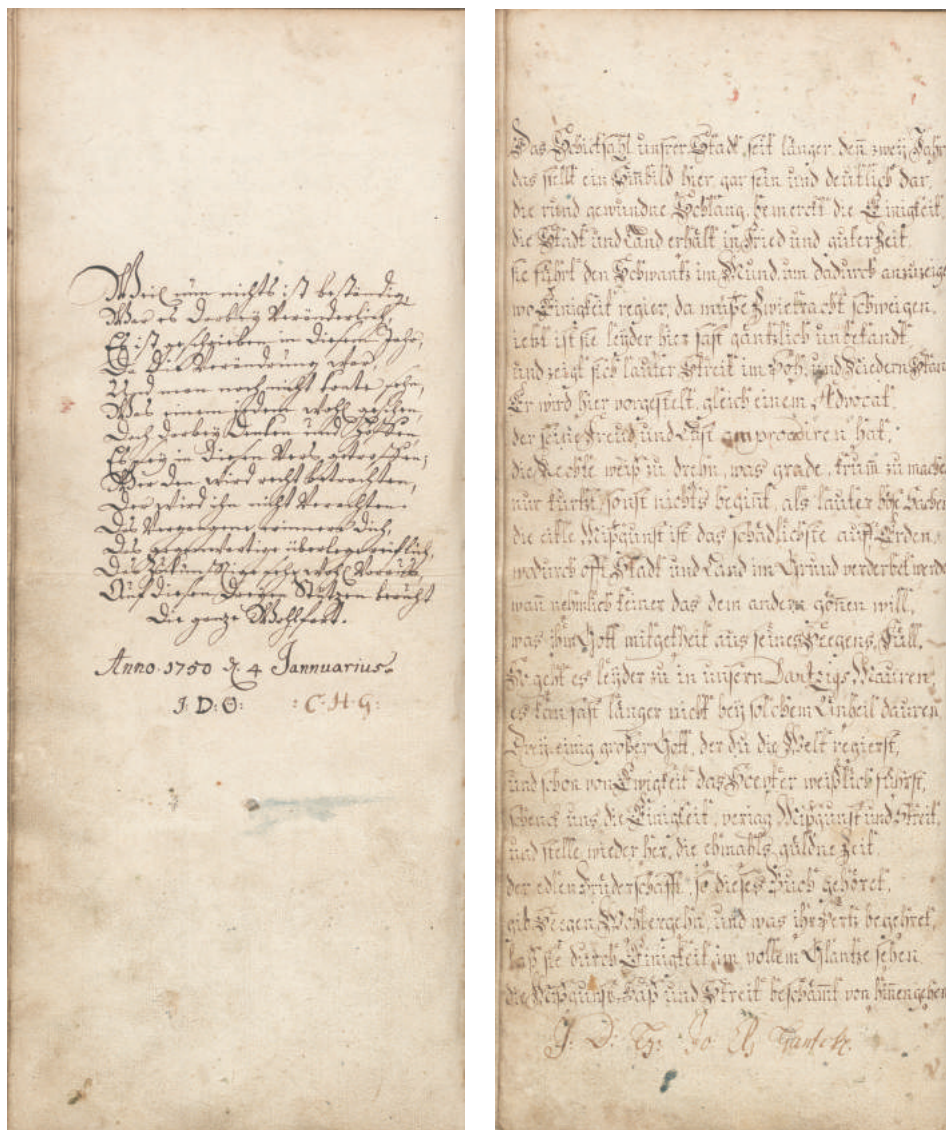 Weil nun nichts ist beständig
Wer es Darbey Veränderlich,
Es ist geschrieben in diesem Jahr,
Da die Veränderung war,
Und man noch nicht konte sehn,
Was einem jedem wohl geschen,
Doch darbey Denken und Hoffen,
Es sey in diesen Vers getroffen;
Wer den wird recht betrachten,
Der wird ihn nicht Verachten.
Das Vergangene erinnere dich,
Das gegenwertige überlege reiflich,
Das Zukünfftige sehe wohl Voraus,
Auf diesen Dreyen Stützen beruht
Die gantze Wohlfart.
Anno 1750 d 4 Jannuarius
J: D: O: : C: H: G:
Das Schicksahl unsrer Stadt, seit länger den zwey Jahr
das stellt ein Sinbild hier, gar fein und deutlich dar,
die rund gewundne Schlang, bemerckt die Einigkeit
die Stadt und Land erhält in Fried und guter Zeit.
sie führt den Schwantz im Mund, um dadurch anzuzeige
wo Einigkeit regier, da müße Zwietracht schweigen.
ietzt ist sie leyder hier fast gäntzlich unbekandt,
und zeigt sich lauter Streit im Hoh und Niedern Stan
Er wird hier vorgestelt, gleich einem Advocat.
der seine Freud und Lust am procediren hat,
die Rechte weiß zu drehn, was grade, krum zu mache
nur kurtz, sonst nichts begint, als lauter böse Sache
die eitle Mißgunst ist das schädlichste auff Erden,
wodurch offt Stadt und Land im Grund verderbet werde
wan nehmlich keiner das dem andern gönen will,
was ihm Gott mitgetheit aus seines Seegens Füll.
So geht es leyder zu in unsern Dantzigs Mauren,
es kan fast länger nicht bey solchem Unheil dauren
Drey einig großer Gott, der du die Welt regierst,
und schon von Ewigkeit das Scepter weißlich führst,
schenck uns die Einigkeit, veriag Mißgunst und Streit,
und stelle wieder her, die ehmahls güldne Zeit.
der edlen Brüderschafft, so dieses Buch gehöret,
gib Seegen, Wohlergehn, und was ihr Hertz begehret,
laß sie durch Einigkeit im vollem Glantze sehen
die Mißgunst, Haß und Streit beschämt von hinnen gehen
J. D.